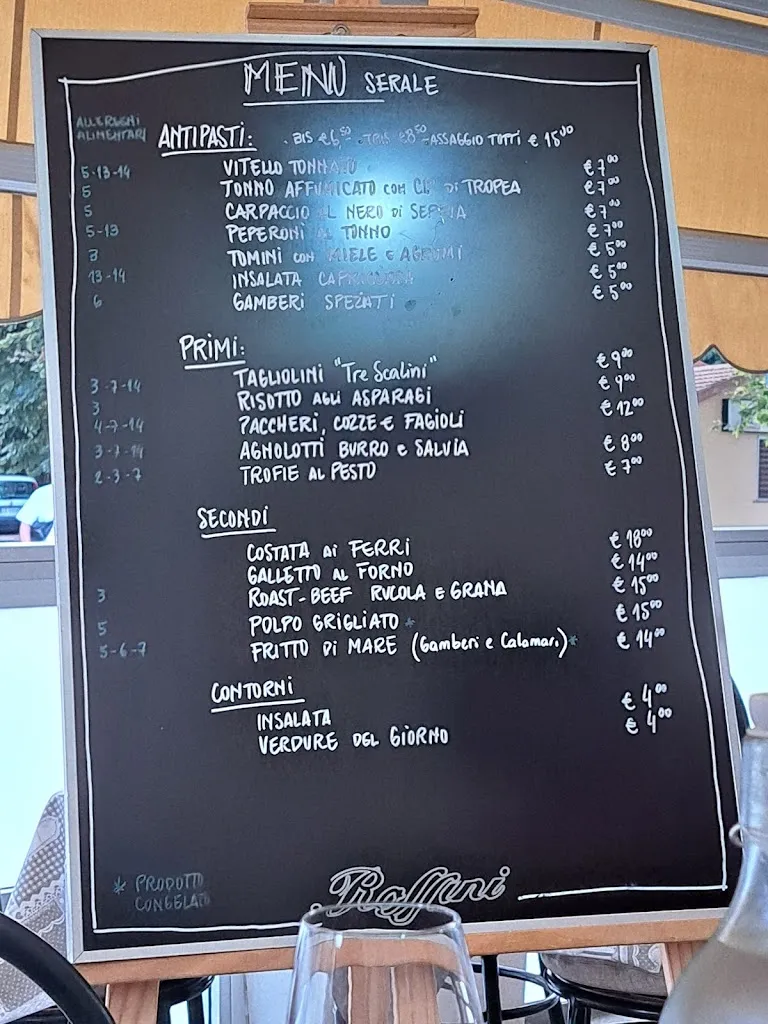 MENÙ SERALE
ALLERGENI
ALIMENTARI
ANTIPASTI: . BIS €6,50 - TRIS €8,50 - ASSAGGIO TUTTI € 15,00
5-13-14 VITELLO TONNATO € 7,00
5 TONNO AFFUMICATO CON DI TROPEA € 7,00
5 CARPACCIO AL NERO DI SEPPIA € 7,00
5-13 PEPERONI AL TONNO € 7,00
3 TOMINI CON MIELE E AGRUMI € 5,00
13-14 INSALATA CAPRICCIOSA € 5,00
6 GAMBERI SPEZIATI € 5,00
PRIMI:
3-7-14 TAGLIOLINI "Tre Scalini" € 9,00
3 RISOTTO AGLI ASPARAGI € 9,00
4-7-14 PACCHERI, COZZE E FAGIOLI € 12,00
3-7-14 AGNOLOTTI BURRO E SALVIA € 8,00
2-3-7 TROFIE AL PESTO € 7,00
SECONDI
COSTATA AI FERRI € 18,00
GALLETTO AL FORNO € 14,00
3 ROAST-BEEF RUCOLA E GRANA € 15,00
5 POLPO GRIGLIATO * € 15,00
5-6-7 FRITTO DI MARE (Gamberi e Calamari) * € 14,00
CONTORNI
INSALATA € 4,00
VERDURE DEL GIORNO € 4,00
* PRODOTTO
CONGELATO
Raffini